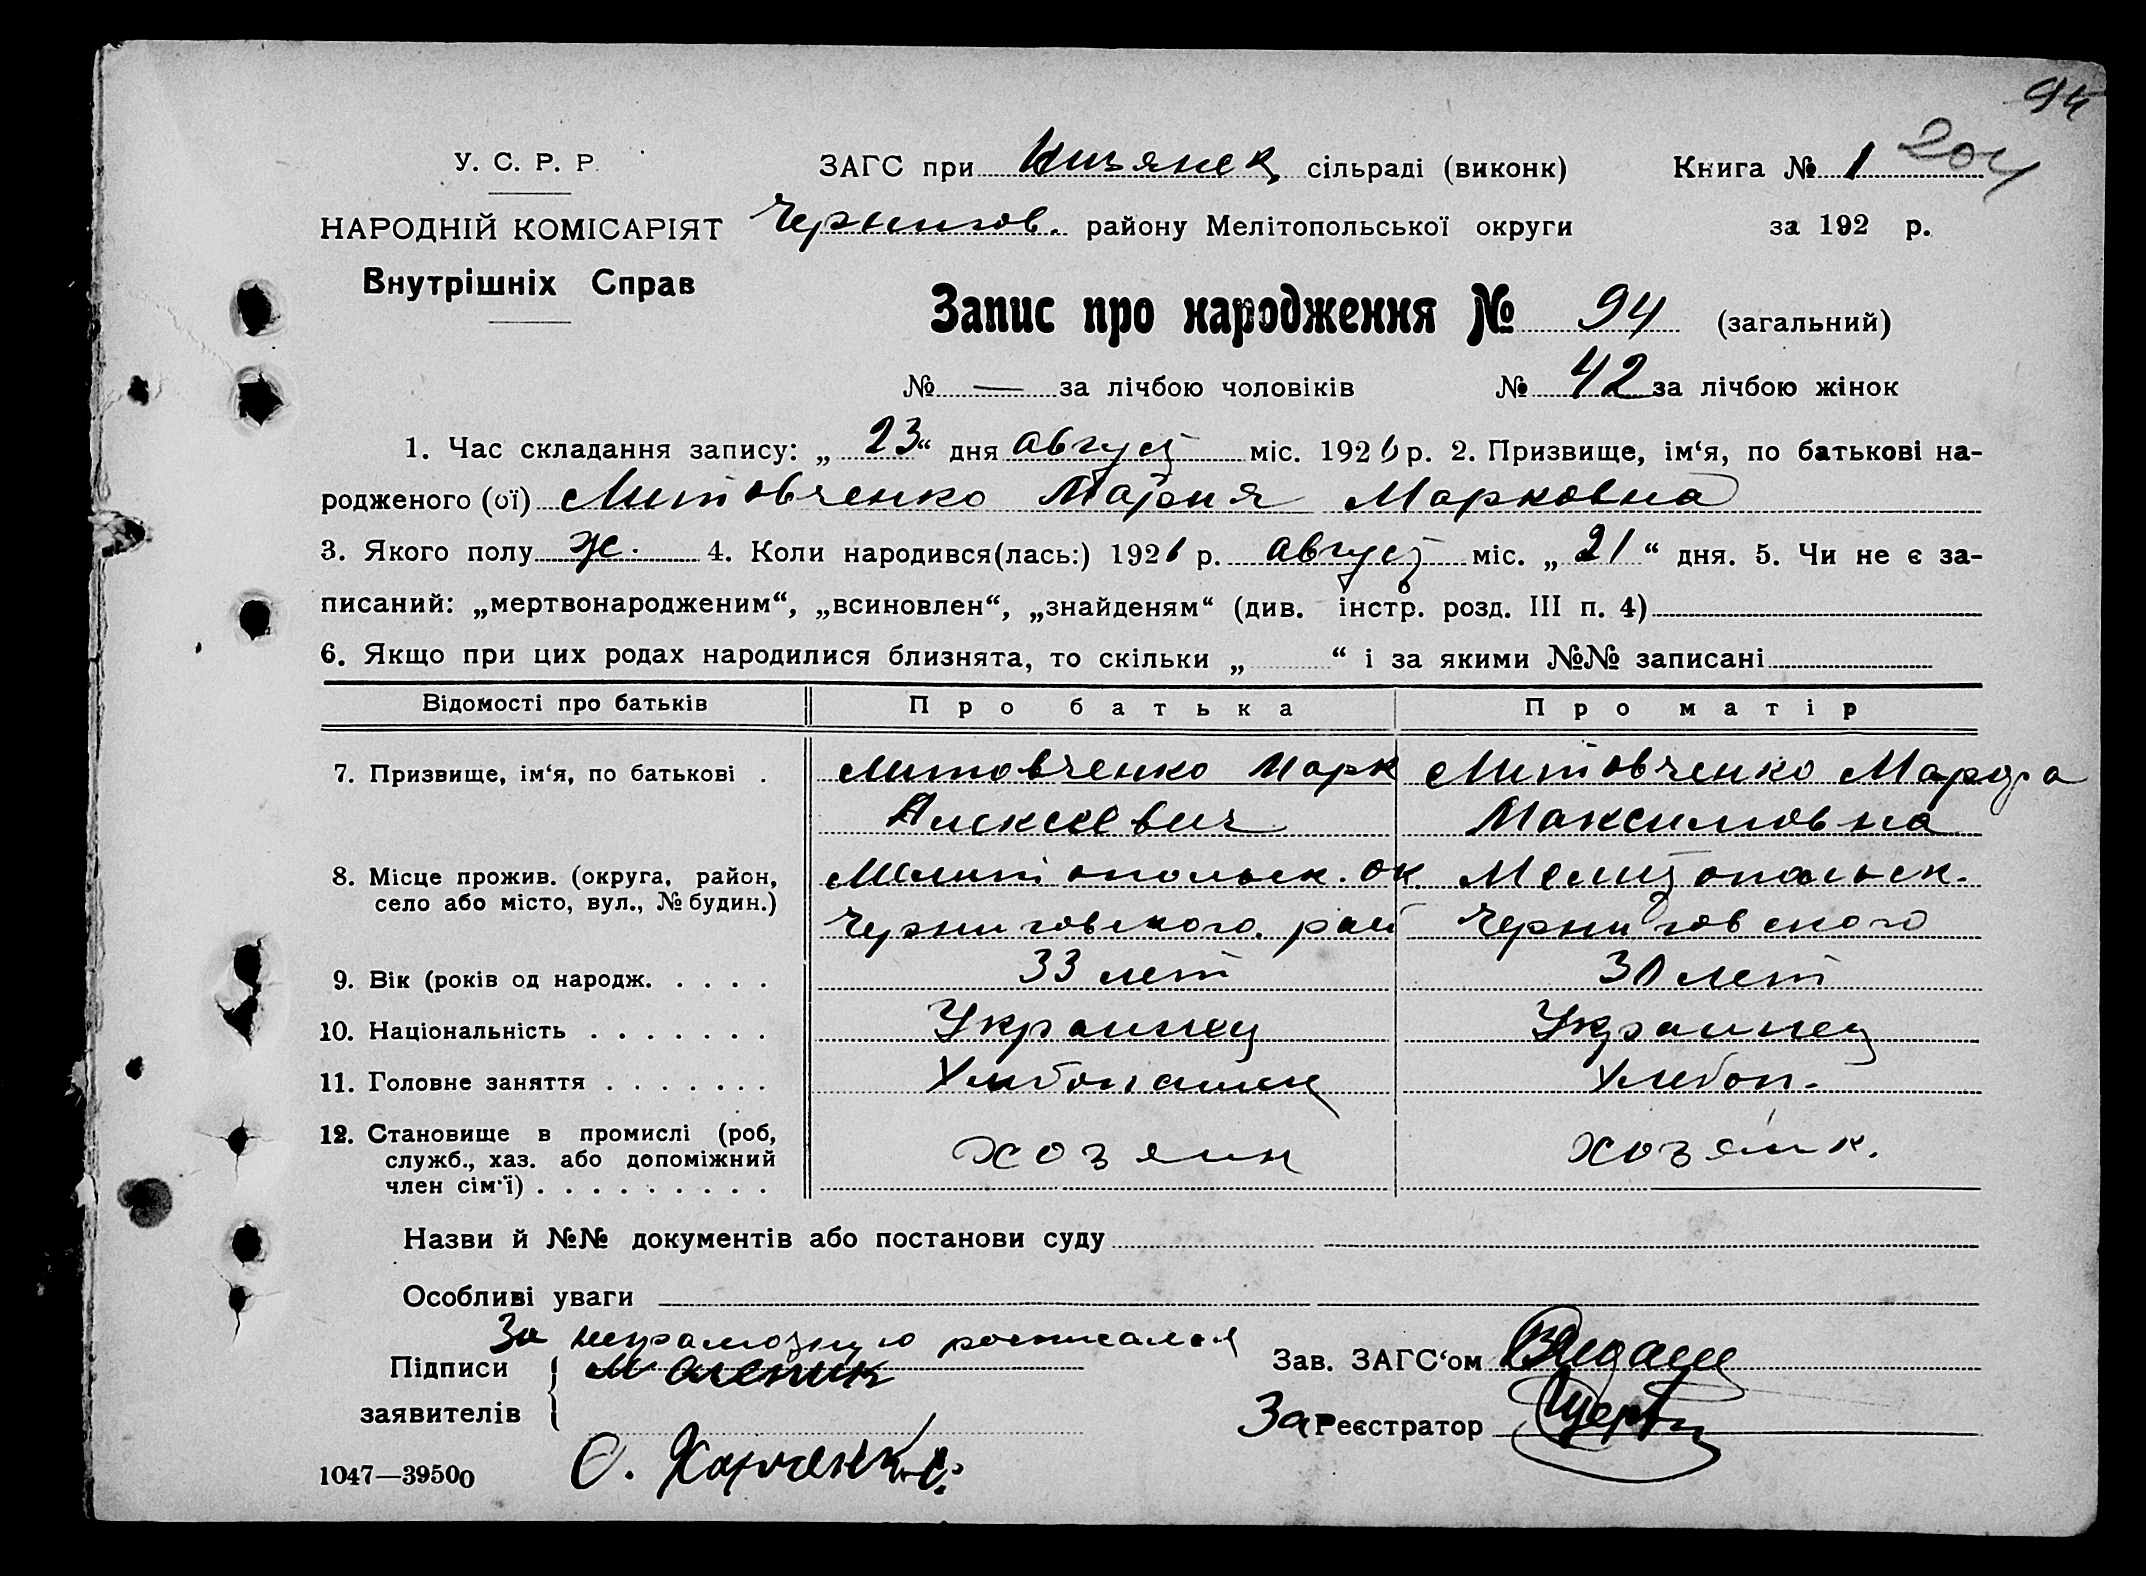 94
204
У. С. Р. Р.
ЗАГС при Низянск сільраді (виконк)
Книга № 1
НАРОДНІЙ КОМІСАРІЯТ
Чернигов. району Мелітопольської округи
за 192 р.
Внутрішніх Справ
Запис про народження № 94 (загальний)
№ — за лічбою чоловіків № 42 за лічбою жінок
1. Час складання запису: „ 23 “ дня август міс. 1926 р. 2. Призвище, ім‘я, по батькові на-
родженого (ої) Литовченко Марковна
3. Якого полу ж. 4. Коли народився(лась:) 1926 р. август міс. „ 21 “ дня. 5. Чи не є за-
писаний: „мертвонародженим“, „всиновлен“, „знайденям“ (див. інстр. розд. III п. 4)
6. Якщо при цих родах народилися близнята, то скільки „ “ і за якими №№ записані
Відомості про батьків Про батька Про матір
7. Призвище, ім‘я, по батькові . Литовченко Марк Литовченко Марфа
Алексеевич Максимовна
8. Місце прожив. (округа, район, Мелитопольск. ок Мелитопольск.
село або місто, вул., № будин.)
Черниговского рай Черниговского
9. Вік (років од народж. . . . . 33 лет 30 лет
10. Національність . . . . . . . Украинец Украинец
11. Головне заняття . . . . . . . Хлебопашец Хлебоп.
12. Становище в промислі (роб,
служб., хаз. або допоміжний хозяин хозяйк.
член сім‘ї) . . . . . . . . .
Назви й №№ документів або постанови суду
Особливі уваги
За неграмотную росписался
Підписи
Зав. ЗАГС‘ом
заявителів
За Реєстратор
О. Харченко
1047—39500